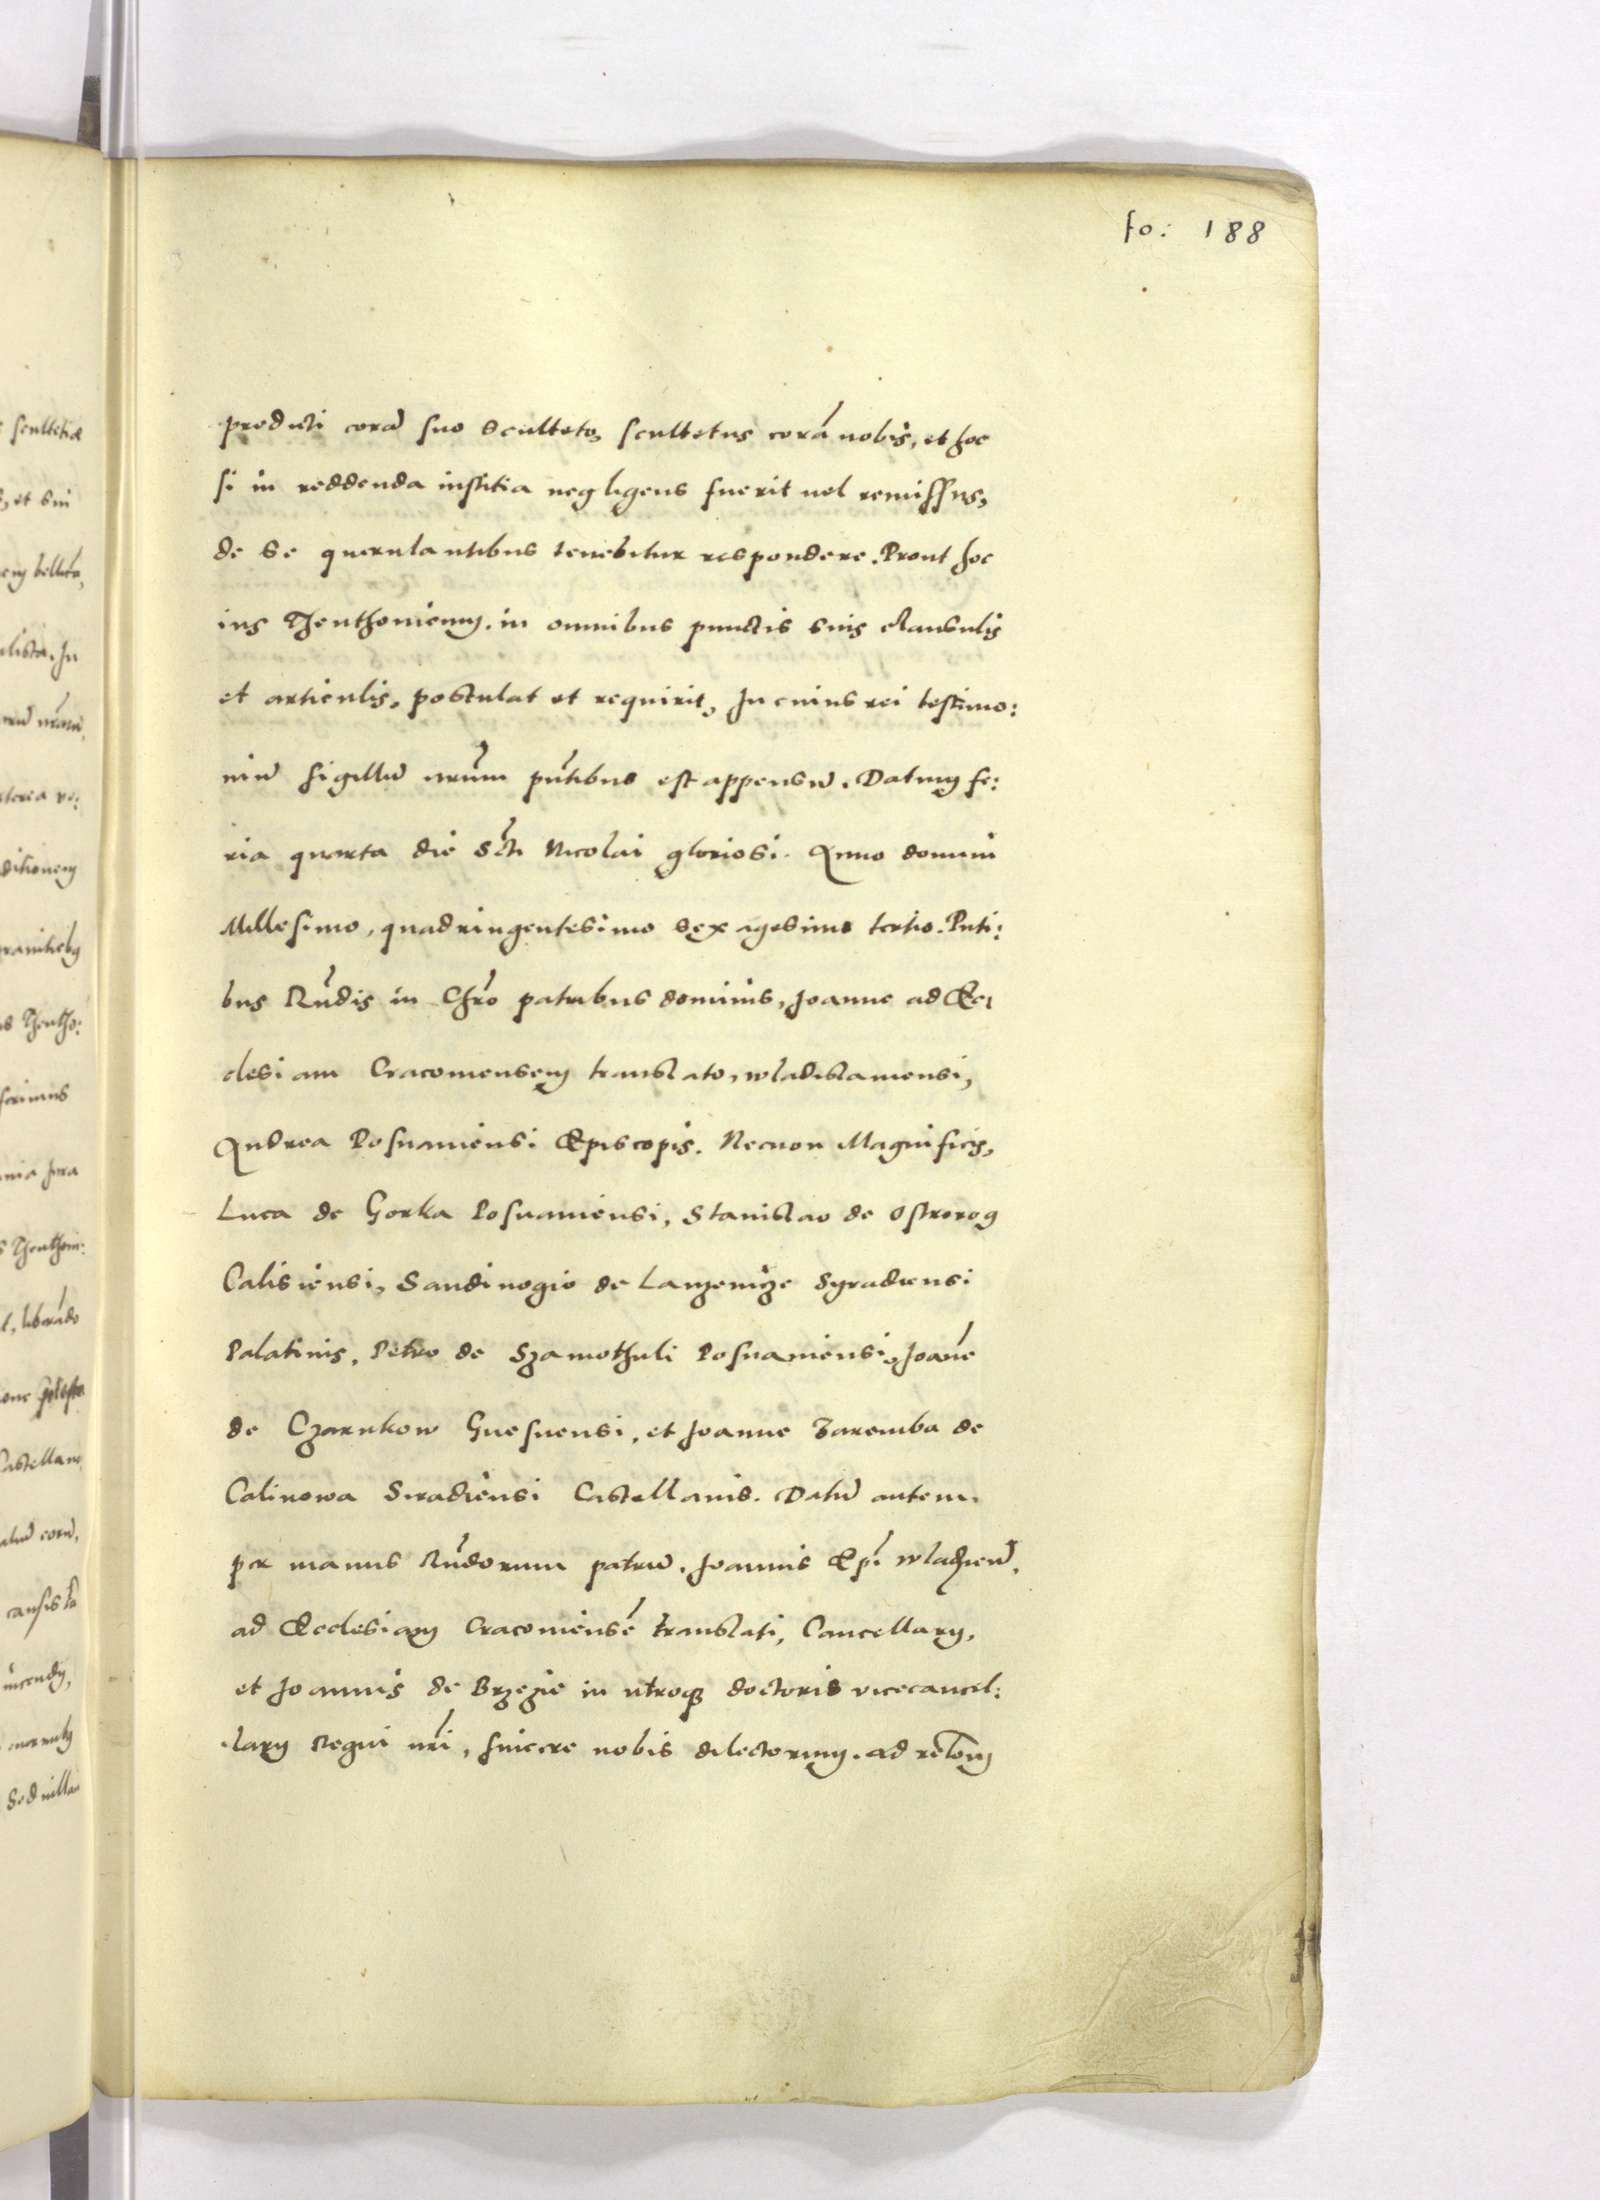 fo: 188
predicti corā suo Sculteto, scultetus corā nobis, et hoc
si in reddenda iustitia negligens fuerit uel remissus,
de se querulantibus tenebitur respondere. Prout hoc
ius Theuthonicum. in omnibus punctis suis clausulis
et articulis, postulat et requirit, In cuius rei testimo:
niū sigillū nrūm pñtibus est appensū. Datum fe:
ria quarta die Scti Nicolai gloriosi. Anno domini
Millesimo, quadringentesimo sexagesimo tertio. Pnti:
bus Rñdis in Chro patribus dominis, Joanne ad Ec:
clesiam Cracouiensem translato, wladislauiensi,
Andrea Posnaniensi Episcopis. Necnon Magnificis,
Luca de Gorka Posnaniensi, Stanislao de Ostrorog
Calisiensi, Sandiuogio de Lanzenicze Syradiensi
Palatinis, Petro de Szamothuli Posnaniensi, Joāne
de Czarnkow Gnesnensi, et Joanne Zaremba de
Calinowa Siradiensi Castellanis. Datū autem.
per manus Rñdorum patrū. Joannis Epi wladien̄.
ad Ecclesiam Cracouiensē translati, Cancellary,
et Joannis de Brzezie in utroqȝ doctoris vicecancel:
lary Regni nri, sincere nobis dilectorum. ad relõem
scultetiæ
, et sui
lista. In
terea ve:
ditionem
s Theutho:
s Theuthon:
l, liberādo
Castellano
causis
Sed